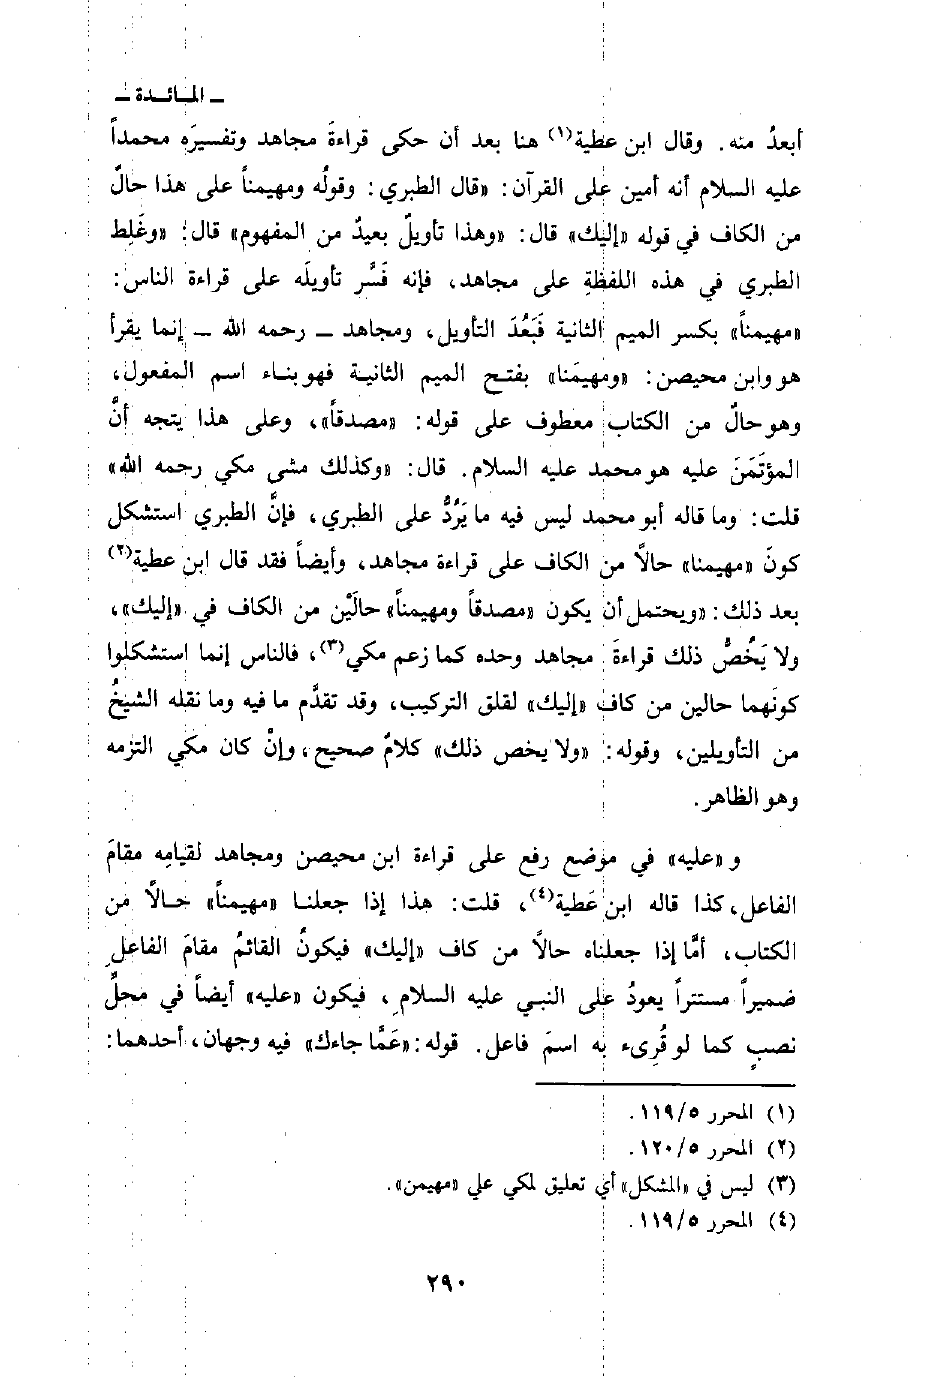 ـ المـائـدة ـ
أبعدُ منه. وقال ابن عطية(١) هنا بعد أن حكى قراءةَ مجاهد وتفسيرَه محمداً
عليه السلام أنه أمين على القرآن: «قال الطبري: وقولُه ومهيمناً على هذا حالٌ
من الكاف في قوله «إليك» قال: «وهذا تأويلٌ بعيدٌ من المفهوم» قال: «وغَلِط
الطبري في هذه اللفظةِ على مجاهد، فإنه فَسَّر تأويلَه على قراءة الناس:
«مهيمناً» بكسر الميم الثانية فَبَعُدَ التأويل، ومجاهد ـ رحمه الله ـ إنما يقرأ
هو وابن محيصن: «ومهيمَنا» بفتح الميم الثانيـة فهو بناء اسم المفعول،
وهو حالٌ من الكتاب معطوف على قوله: «مصدقاً»، وعلى هذا يتجه أنَّ
المؤتَمَنَ عليه هو محمد عليه السلام. قال: «وكذلك مشى مكي رحمه الله»
قلت: وما قاله أبو محمد ليس فيه ما يَرُدُّ على الطبري، فإنَّ الطبري استشكل
كونَ «مهيمنا» حالاً من الكاف على قراءة مجاهد، وأيضاً فقد قال ابن عطية(٢)
بعد ذلك: «ويحتمل أن يكون «مصدقاً ومهيمناً» حالَيْن من الكاف في «إليك»،
ولا يَخُصُّ ذلك قراءةَ مجاهد وحده كما زعم مكي(٣)، فالناس إنما استشكلوا
كونَهما حالين من كاف «إليك» لقلق التركيب، وقد تقدَّم ما فيه وما نقله الشيخُ
من التأويلين، وقوله: «ولا يخص ذلك» كلامٌ صحيح، وإنْ كان مكي التزمه
وهو الظاهر.
و «عليه» في موضع رفع على قراءة ابن محيصن ومجاهد لقيامِه مقامَ
الفاعل، كذا قاله ابن عَطية(٤)، قلت: هذا إذا جعلنـا «مهيمناً» حـالاً من
الكتاب، أمَّا إذا جعلناه حالاً من كاف «إليك» فيكونُ القائمُ مقامَ الفاعلِ
ضميراً مستتراً يعودُ على النبي عليه السلامِ، فيكون «عليه» أيضاً في محلِّ
نصبٍ كما لو قُرِىء به اسمَ فاعل. قوله: «عَمَّا جاءك» فيه وجهان، أحدهما:
(١) المحرر ١١٩/٥.
(٢) المحرر ١٢٠/٥.
(٣) ليس في «المشكل» أي تعليق لمكي علي «مهيمن».
(٤) المحرر ١١٩/٥.
٢٩٠